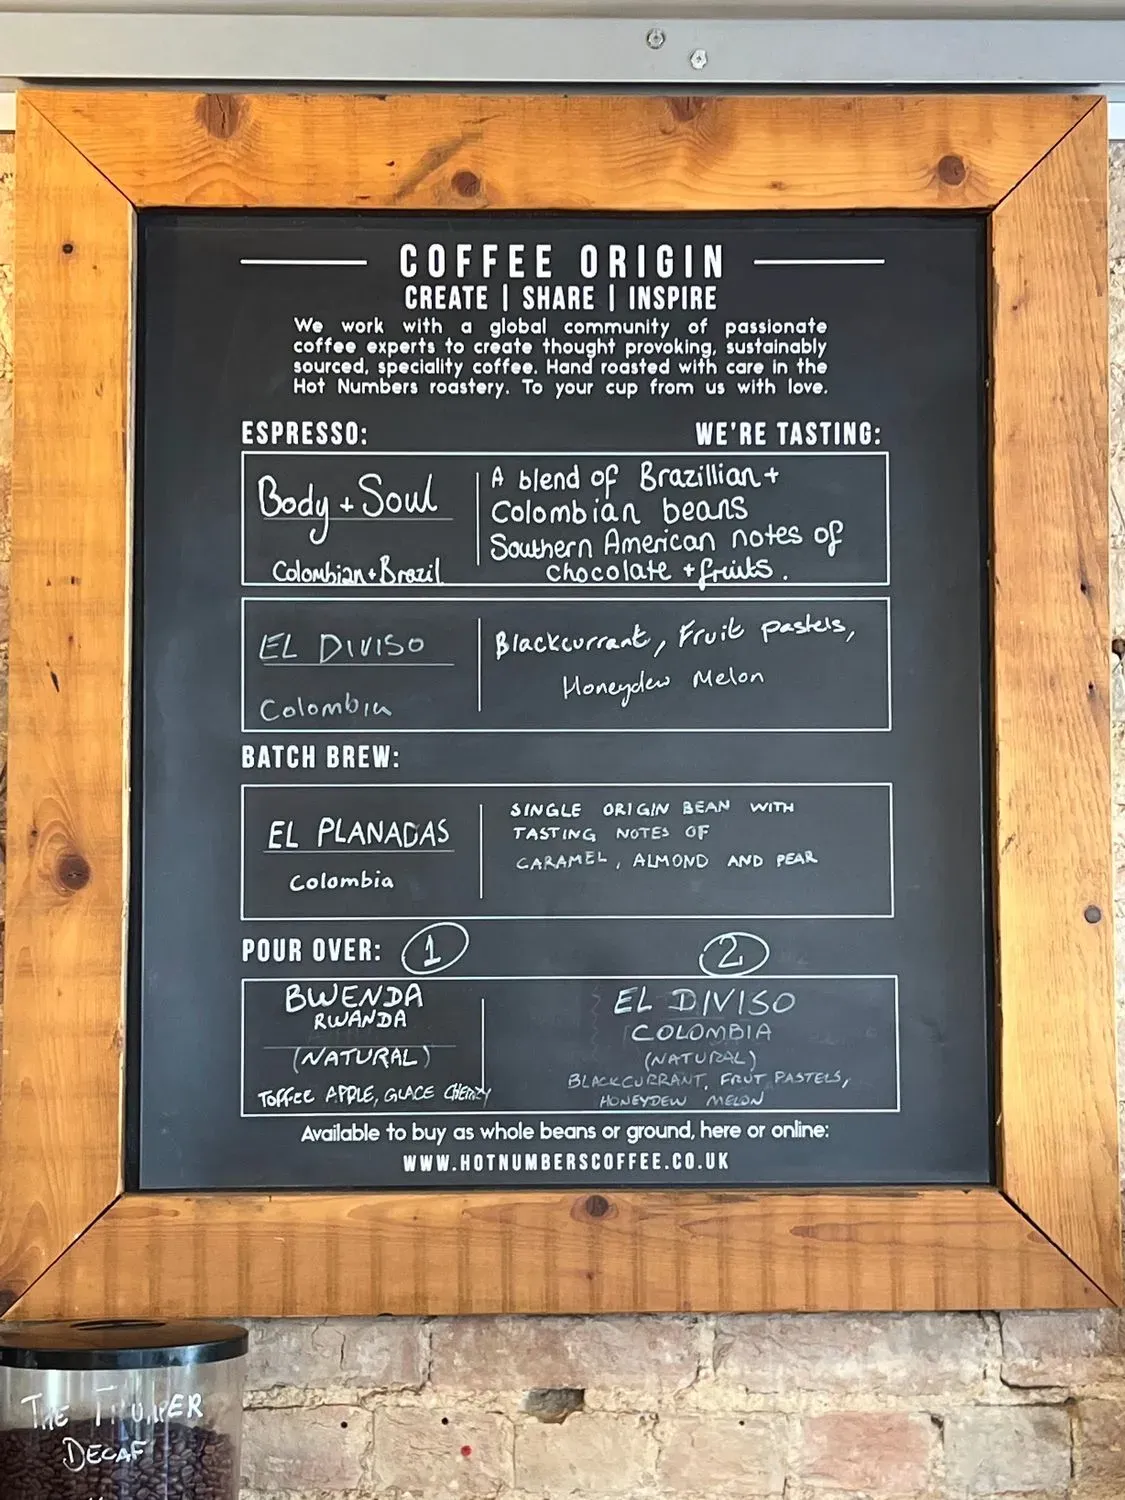 COFFEE ORIGIN
CREATE | SHARE | INSPIRE
We work with a global community of passionate
coffee experts to create thought provoking, sustainably
sourced, speciality coffee. Hand roasted with care in the
Hot Numbers roastery. To your cup from us with love.
ESPRESSO: WE'RE TASTING:
Body + Soul
Colombian + Brazil
A blend of Brazillian +
Colombian beans
Southern American notes of
chocolate + fruits.
EL DIVISO
Colombia
Blackcurrant, Fruit pastels,
Honeydew Melon
BATCH BREW:
EL PLANADAS
Colombia
SINGLE ORIGIN BEAN WITH
TASTING NOTES OF
CARAMEL, ALMOND AND PEAR
POUR OVER: 1 2
BWENDA
RWANDA
(NATURAL)
Toffee APPLE, GLACE CHERRY
EL DIVISO
COLOMBIA
(NATURAL)
BLACKCURRANT, FRUT PASTELS,
HONEYDEW MELON
Available to buy as whole beans or ground, here or online:
WWW.HOTNUMBERSCOFFEE.CO.UK
THE
DECAF